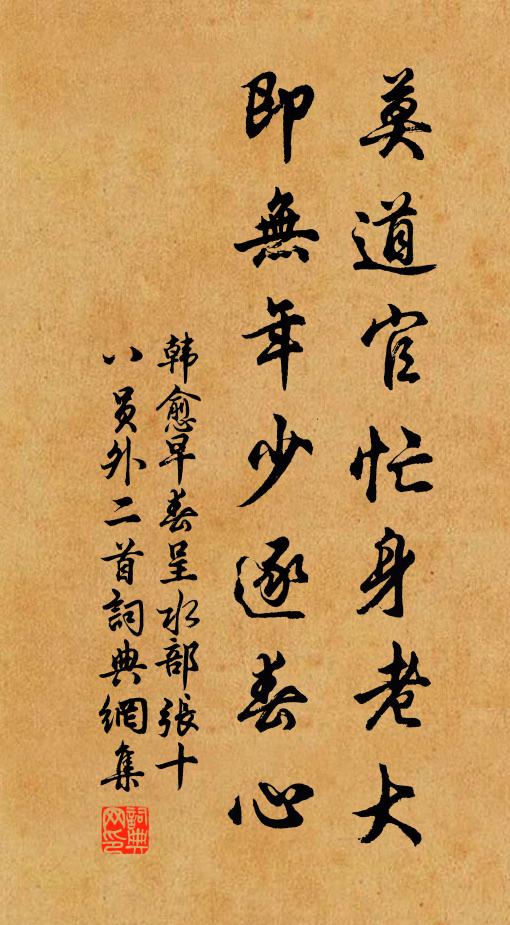 莫道官忙身老大
即無年少逐春心
韩愈早春呈水部張十
八員外二首詞典網集
詞典网印